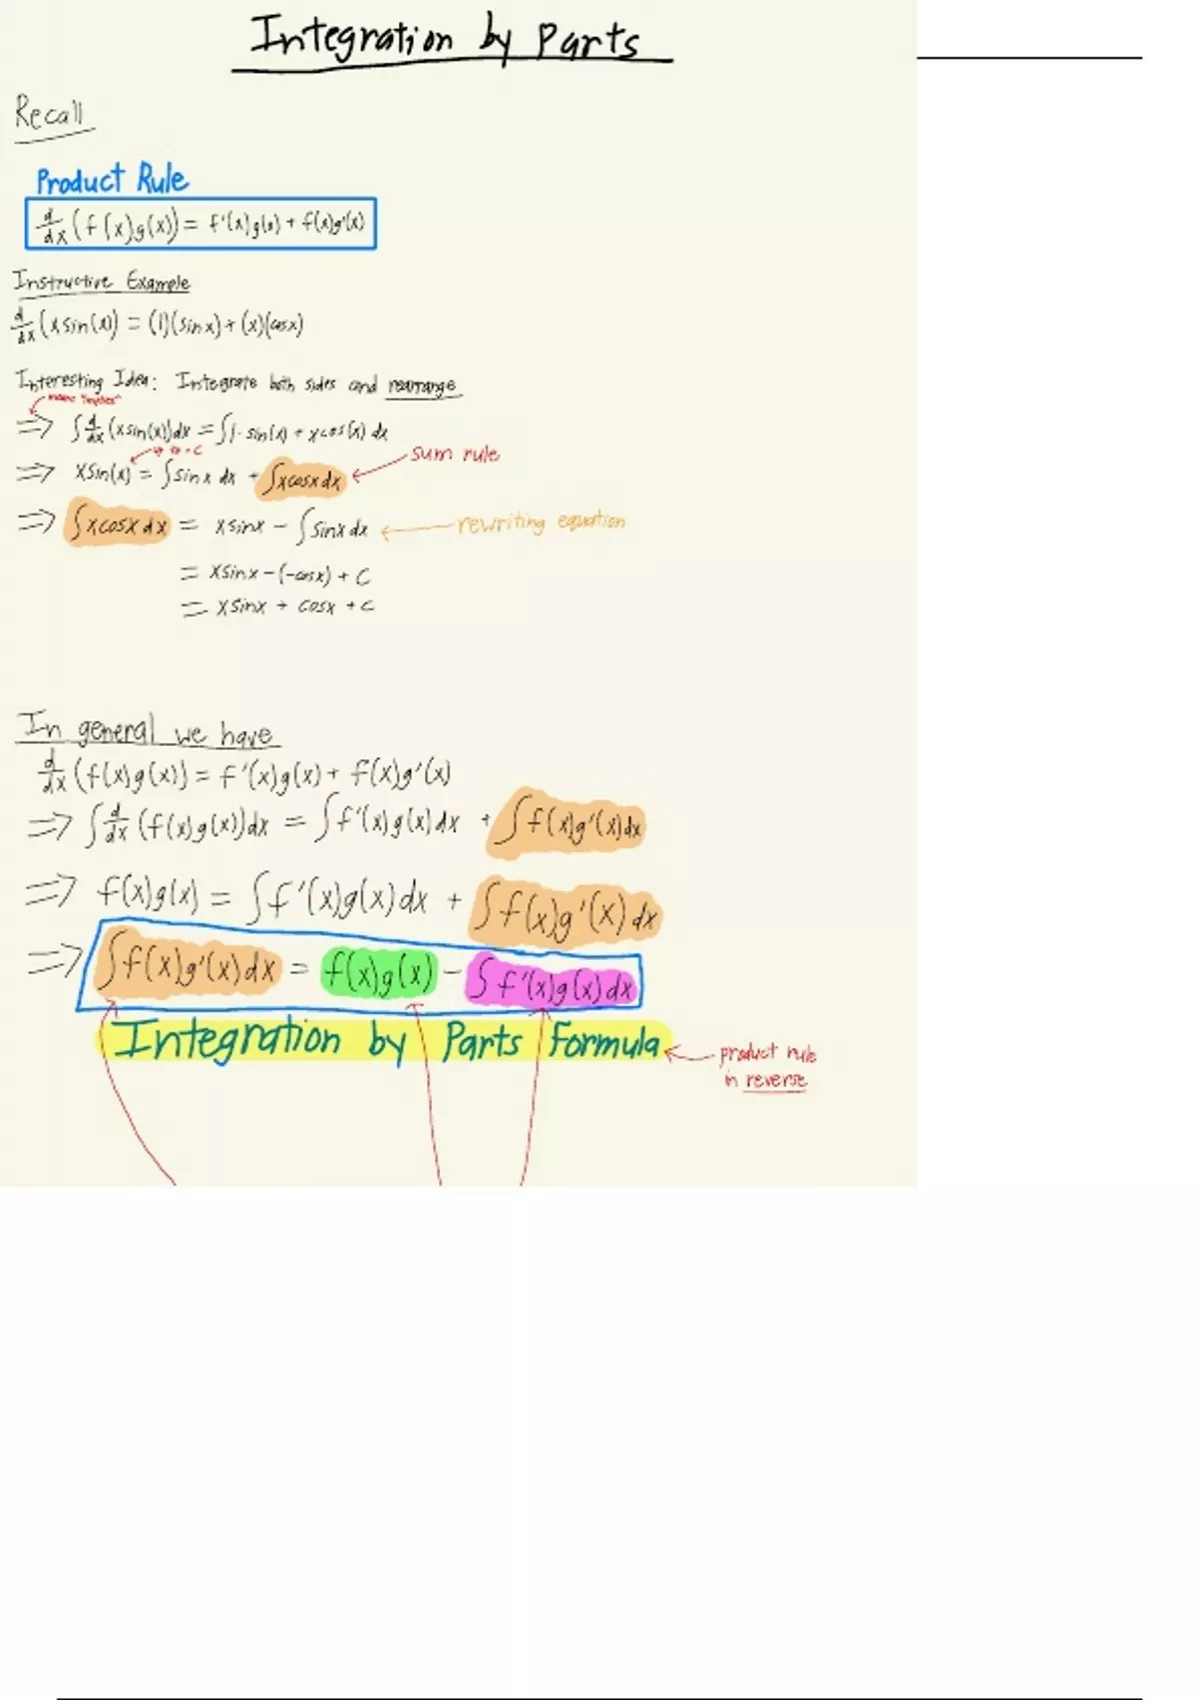 Integration by Parts
Recall
Product Rule
d/dx (f(x)g(x)) = f'(x)g(x) + f(x)g'(x)
Instructive Example
d/dx (x sin(x)) = (1)(sin x) + (x)(cos x)
Interesting Idea: Integrate both sides and rearrange
means "implies"
⇒ ∫ d/dx (x sin(x)) dx = ∫ 1· sin(x) + x cos(x) dx
sum rule
⇒ x sin(x) = ∫ sin x dx + ∫ x cos x dx
⇒ ∫ x cos x dx = x sin x - ∫ sin x dx ← rewriting equation
= x sin x - (-cos x) + C
= x sin x + cos x + C
In general we have
d/dx (f(x)g(x)) = f'(x)g(x) + f(x)g'(x)
⇒ ∫ d/dx (f(x)g(x)) dx = ∫ f'(x)g(x) dx + ∫ f(x)g'(x) dx
⇒ f(x)g(x) = ∫ f'(x)g(x) dx + ∫ f(x)g'(x) dx
⇒ ∫ f(x)g'(x) dx = f(x)g(x) - ∫ f'(x)g(x) dx
Integration by Parts Formula ← product rule
in reverse